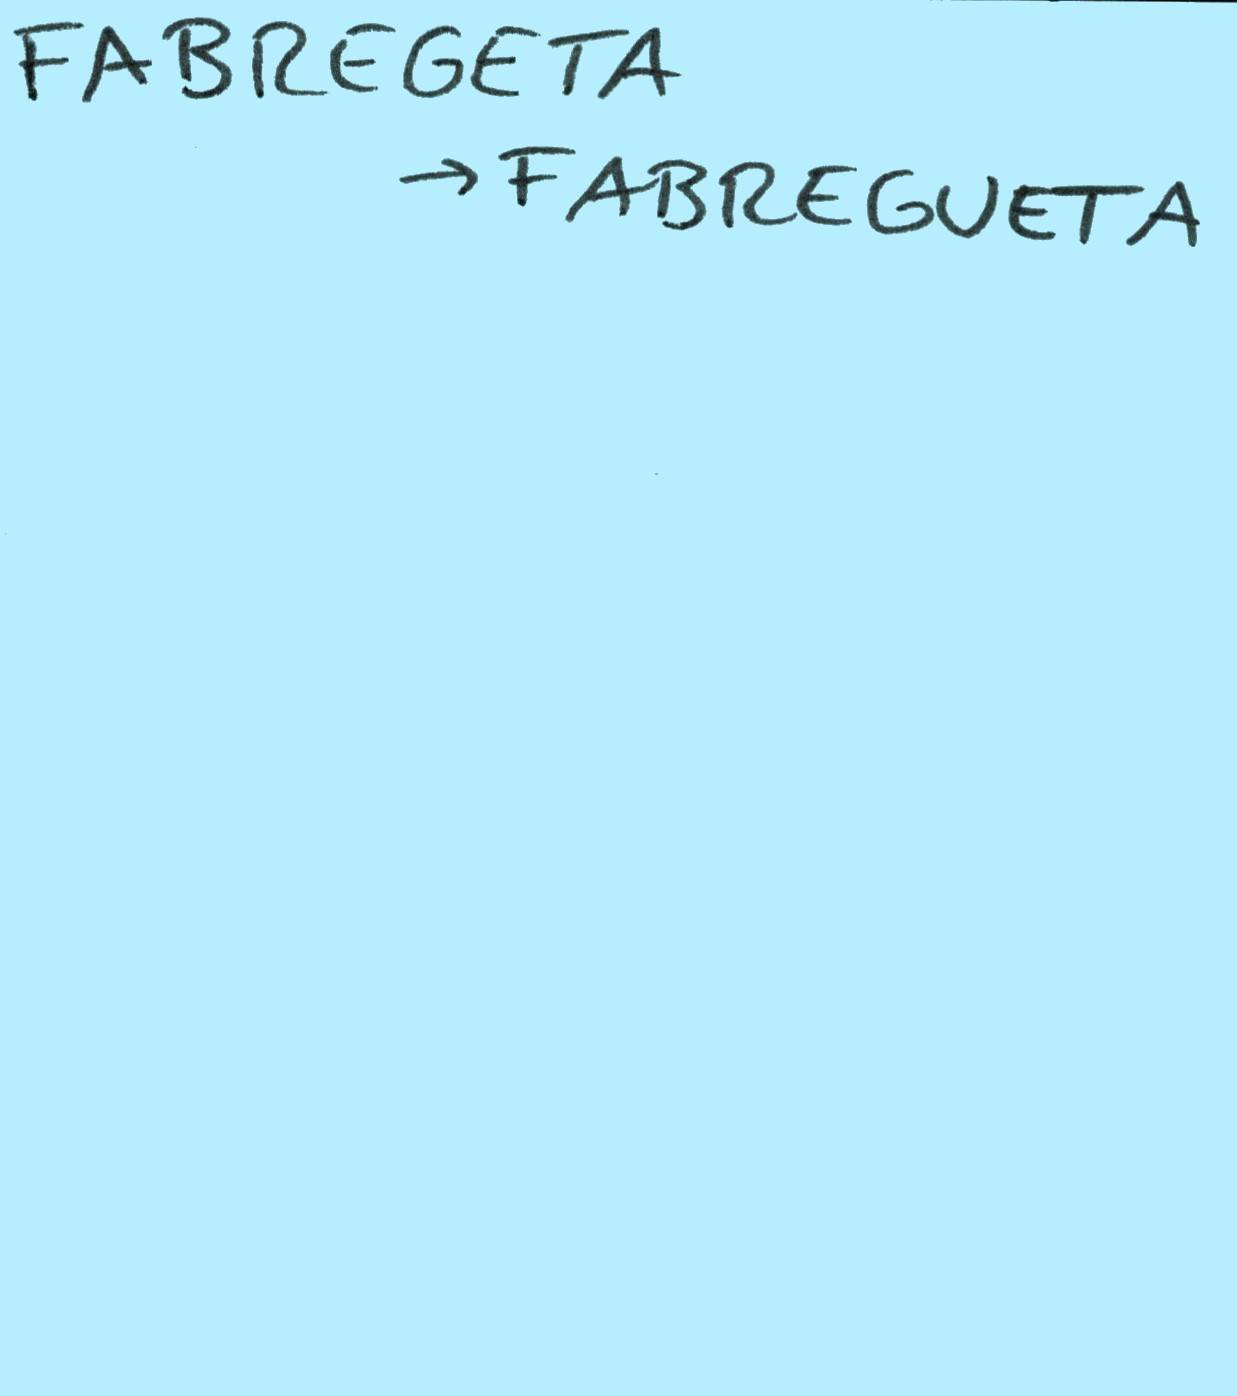 FABREGETA
→ FABREGUETA